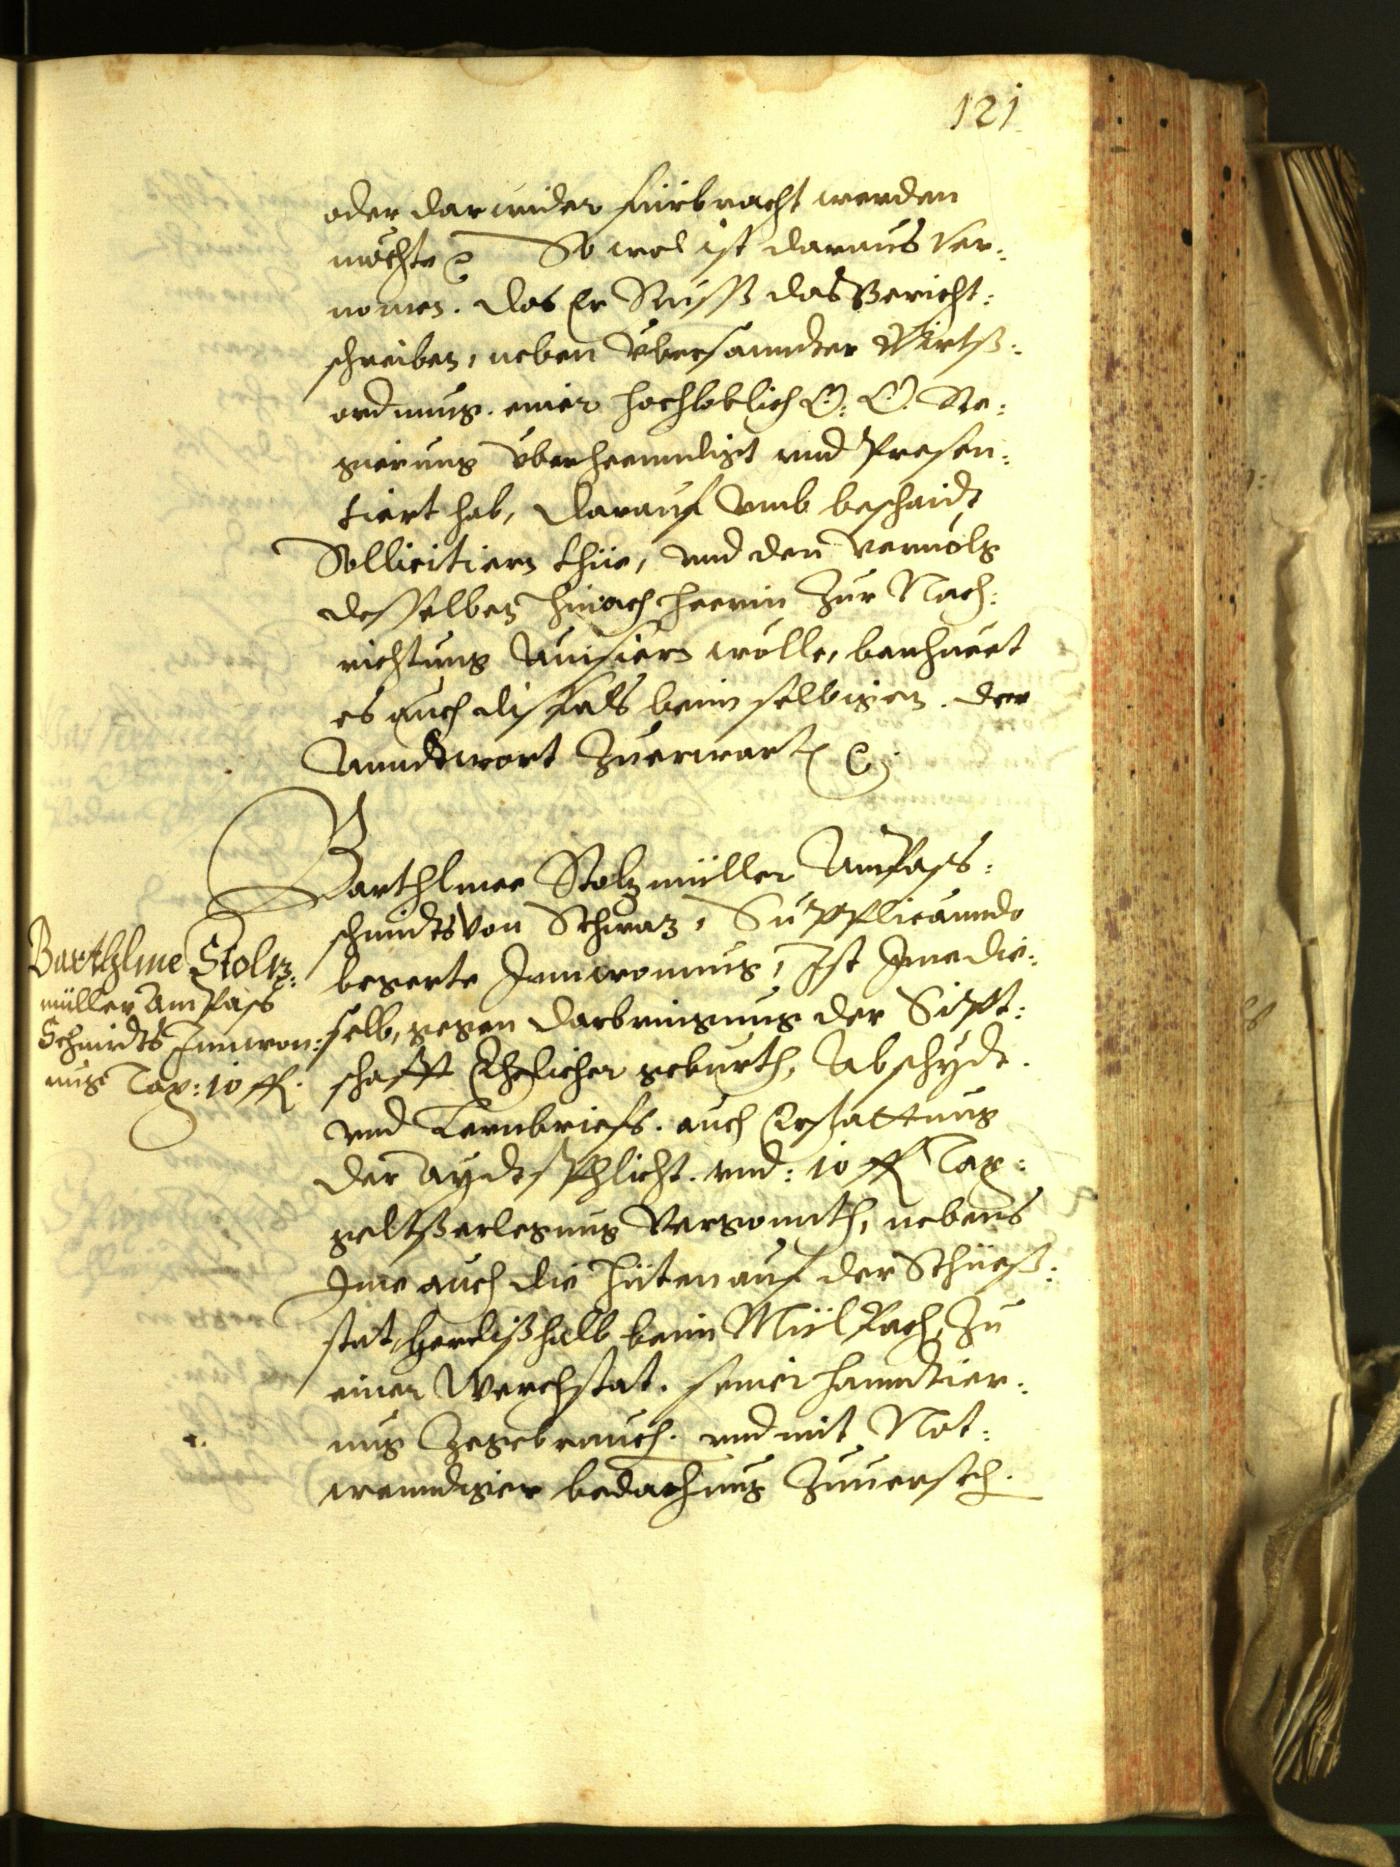 121
oder darwider fürbracht werden
möchte etc. So wol ist daraus ver:
nomen. das Er Russ das Bericht:
schreiben, neben übersanndter Wirtß:
ordnung. einer hochloblich O: Ö. Re:
gierung überhenndigt und Presen:
tiert hab, darauf umb beschaidt
Sollicitiern thüe, und den vervolg
desselben hinach heerin zur Nach:
richtung Auisiern wölle, beruhuet
es auch disfals beim selbigen. der
Anndtwort zuerwarten etc.
Barthlmee Stolzmüller Ampass:
schmidts von Schwaz, Supplicanndo
begerte Innwonung, Ist Ime die:
selb, gegen darbringung der Sipt:
schafft Ehelicher geburth, Abschydt.
und Lernbriefs. auch Erstattung
der Aydtspflicht. und: 10 fl Tax:
geltßerlegung vergonnth, nebens
Ime auch die Hüten auf der Schieß:
stat, herdißhalb beim Mülpach, zu
einer Werchstat. seiner hanndtier:
ung zegebrauch. und mit Not:
wenndiger bedachung zuuersech.
Barthlme Stolz:
müller AmPass
Schmidts Innwon:
ung Tax: 10 fl.